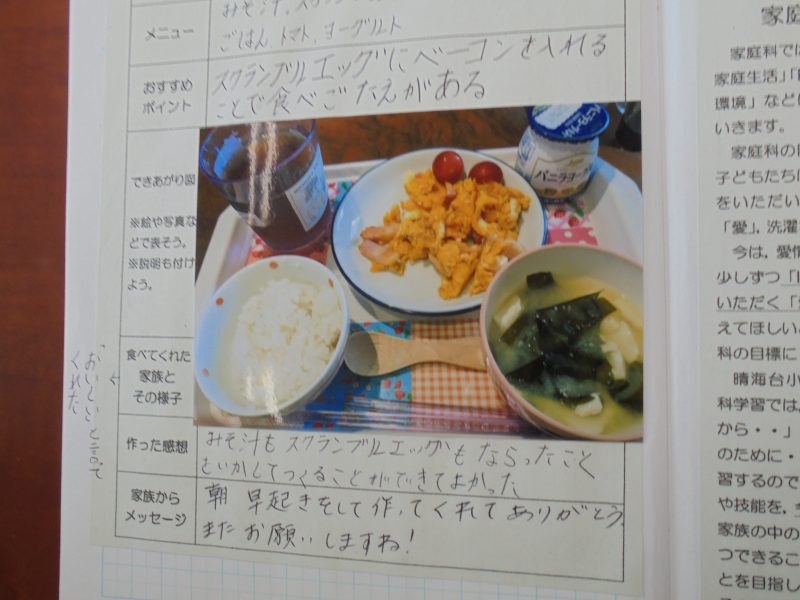 メニュー
みそ汁、スクランブル
ごはん、トマト、ヨーグルト
おすすめ
ポイント
スクランブルエッグにベーコンを入れる
ことで食べごたえがある
できあがり図
※絵や写真な
どで表そう。
※説明も付け
よう。
バニラヨーグルト
食べてくれた
家族と
その様子
「おいしいと言って
くれた
作った感想
みそ汁もスクランブルエッグもならったこと
をいかしてつくることができてよかった
家族から
メッセージ
朝 早起きをして作ってくれてありがとう
またお願いしますね!
家庭
家庭科では
家庭生活」「
環境」など
いきます。
家庭科の
子どもたち
をいただい
「愛」、洗濯
今は、愛情
少しずつ「
いただく「
えてほしい
科の目標に
晴海台小
科学習では
から・・」
のために・
習するので
や技能を、
家族の中の
つできるこ
とを目指し